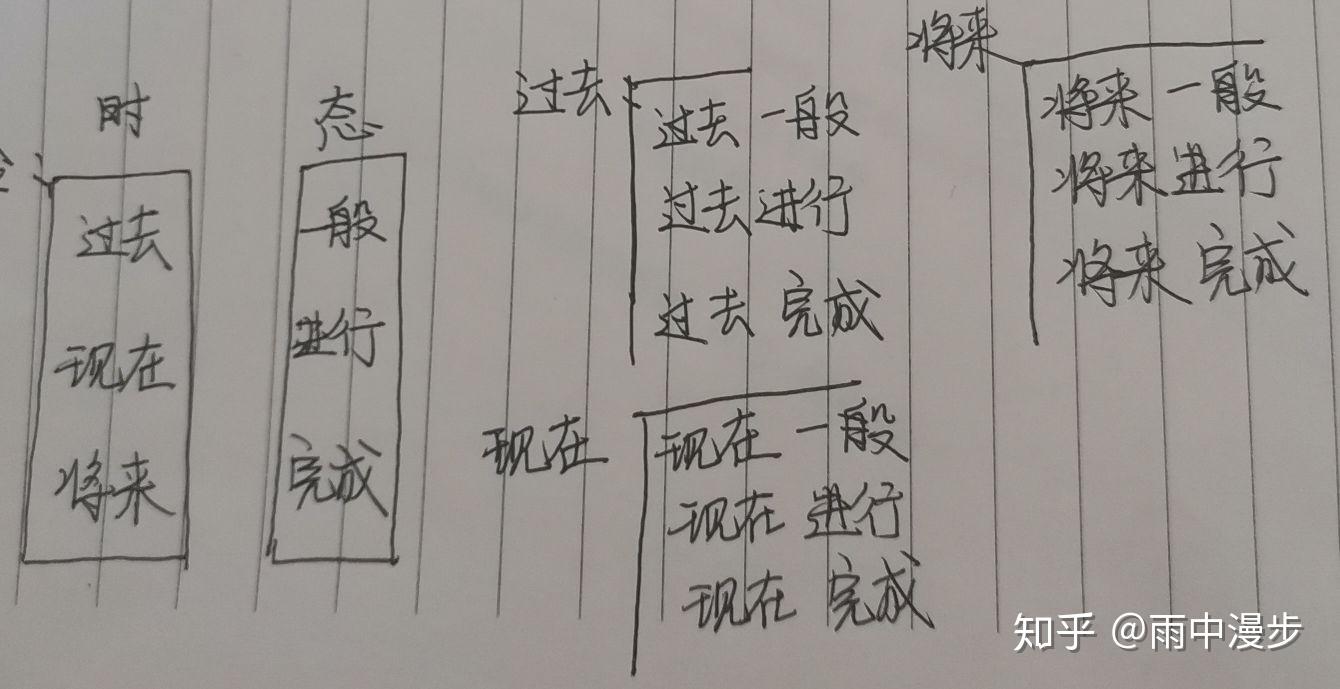 时
过去
现在
将来
态
一般
进行
完成
过去:
过去 一般
过去 进行
过去 完成
现在
现在 一般
现在 进行
现在 完成
将来
将来 一般
将来 进行
将来 完成
知乎 @雨中漫步